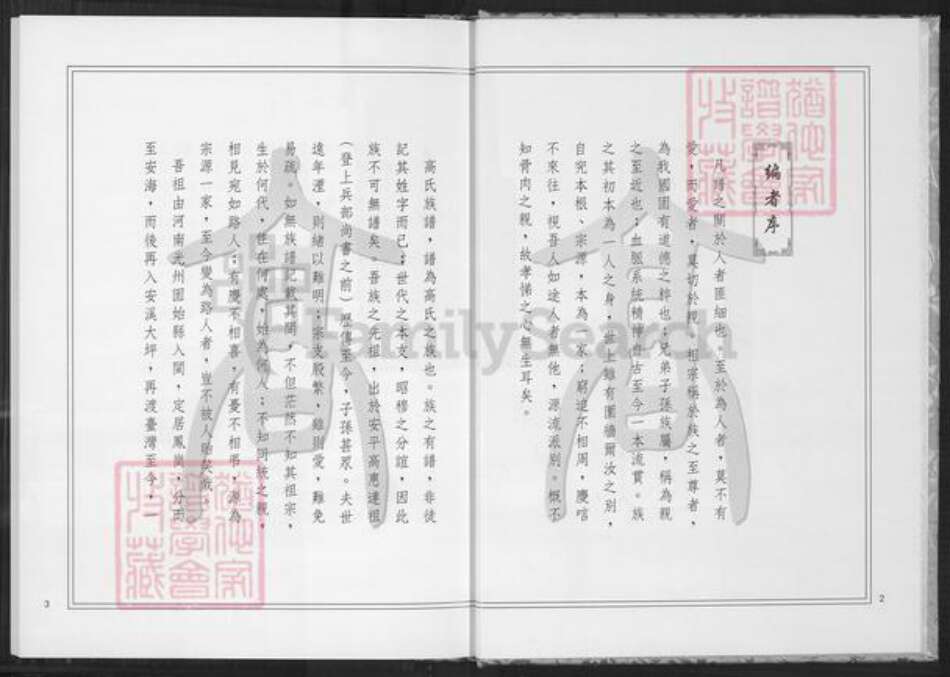 編者序
凡譜之關於人者匪細也。至於為人者，莫不有
愛，而愛者，莫切於親，祖宗稱於族之至尊者，
為我國固有道德之粹也；兄弟子孫族屬，稱為親
之至近也；血脈系統精神自古至今一本流貫。族
之其初本為一人之身，世上雖有圍牆爾汝之別，
自究本根、宗源，本為一家；窮迫不相周，慶唁
不來往，視吾人如途人者無他，源流派別。慨不
知骨肉之親，故孝悌之心無生耳矣。
高氏族譜，譜為高氏之族也。族之有譜，非徒
記其姓字而已；世代之本支，昭穆之分誼，因此
族不可無譜矣。吾族之先祖，出於安平高惠連祖
（登上兵部尚書之前）歷傳至今，子孫甚眾。夫世
遠年湮，則緒以難明；宗支殷繁，雖則愛，難免
易疏。如無族譜記載其間，不但茫然不知其祖宗，
生於何代，住在何處，姓為何人；不知同統之親，
相見宛如路人；有慶不相喜，有憂不相弔，源為
宗源一家，至今變為路人者，豈不被人晒笑哉。
吾祖由河南光州固始縣入閩，定居鳳崗，分而
至安海，而後再入安溪大坪，再渡臺灣至今，
2
3
猶他家
譜學會
收藏
猶他家
譜學會
收藏
FamilySearch